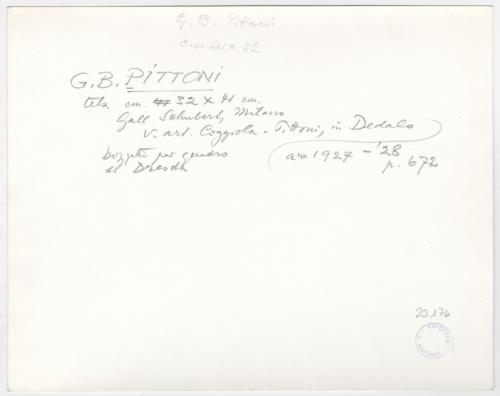 G. B. Pittoni
cm 41 x 32
G.B. PITTONI
tela cm. 32 x 41 cm.
Gall. Schubert, Milano
v. art. Coggiola - Pittoni, in Dedalo
ann 1927 - '28
p. 672
bozzetto per quadro
di Dresda
20.176
FOTOTECA